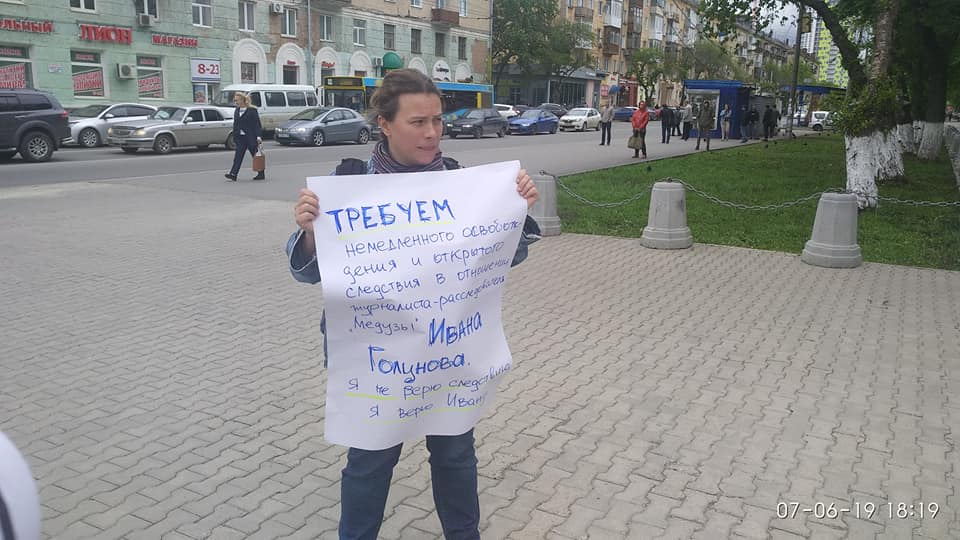 ЛЬНЫЙ
ЛИОН
МАГАЗИН
8-23
ТРЕБУЕМ
немедленного освобож
дения и открытого
следствия в отношении
журналиста-расследователя
"Медузы" Ивана
Голунова.
Я не верю следствию
Я верю Ивану
07-06-19 18:19